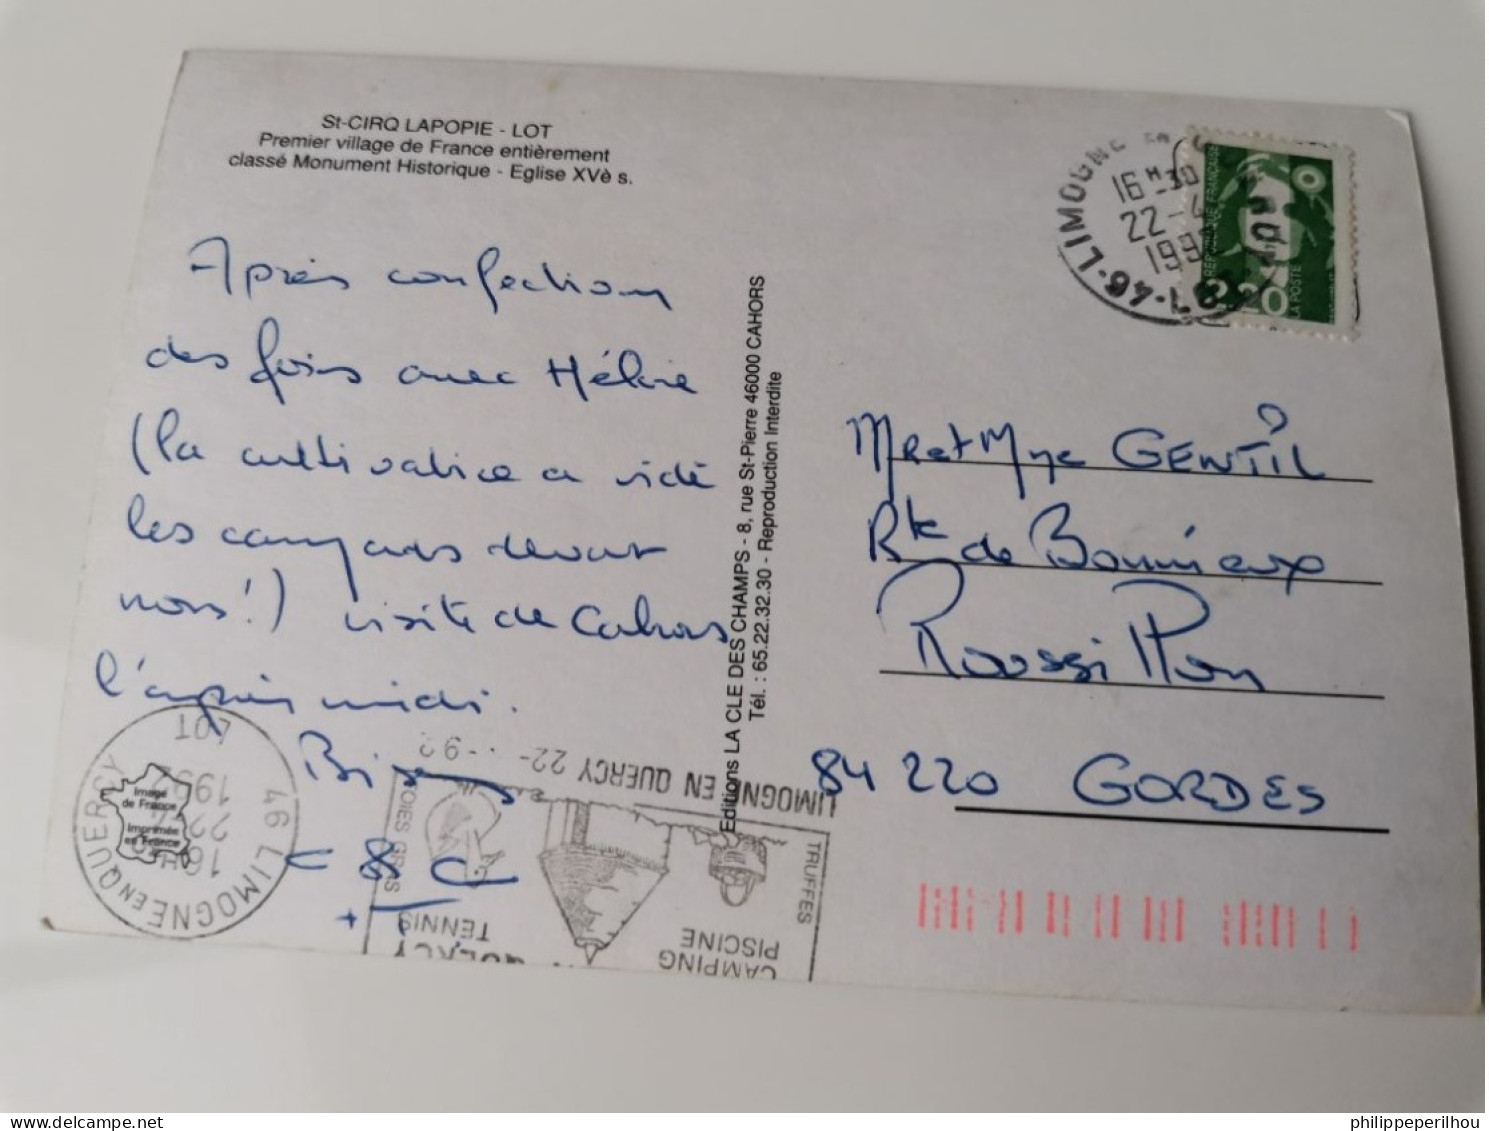 St-CIRQ LAPOPIE - LOT
Premier village de France entièrement
classé Monument Historique - Eglise XVè s.
Après confection
des foies avec Hélène
(la cultivatrice a vidé
les canards devant
nous!) visite de Cahors
l'après midi.
Editions LA CLE DES CHAMPS - 8, rue St-Pierre 46000 CAHORS
Tél. : 65.22.32.30 - Reproduction Interdite
46-LIMOGNE
16 H 30
22-4
199
REPUBLIQUE FRANCAISE
2.20
LA POSTE
Mr et Mme GENTIL
Rte de Bonnieux
Roussillon
84 220 GORDES
46 LIMOGNE EN QUERCY
LOT
16H
22
199
Image
de France
Imprimée
en France
LIMOGNE EN QUERCY 22- -92
TRUFFES
CAMPING
PISCINE
TENNIS
philippeperilhou
delcampe.net